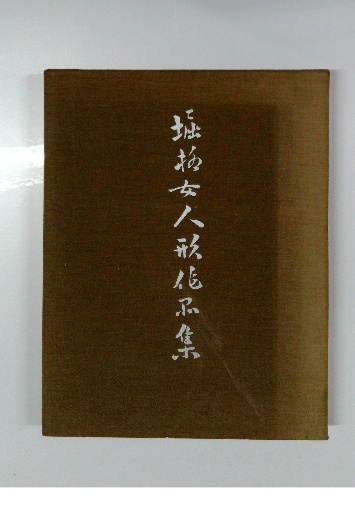 堀柳女人形作品集